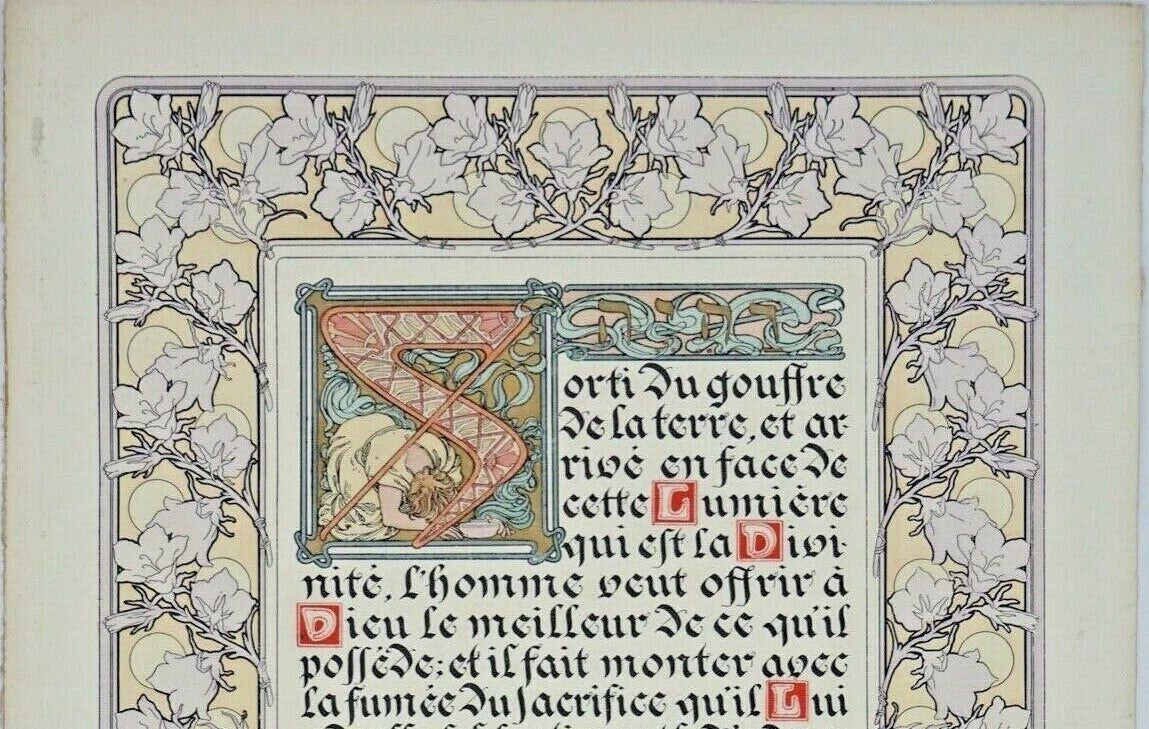 Sorti du gouffre
de la terre, et ar-
rivé en face de
cette Lumière
qui est la Divi-
nité, l'homme veut offrir à
Dieu le meilleur de ce qu'il
possède; et il fait monter avec
la fumée du sacrifice qu'il Lui